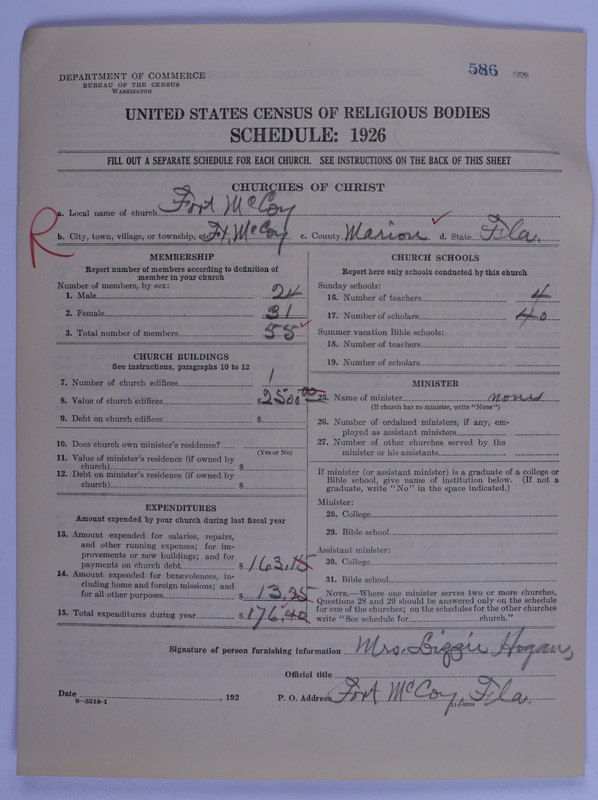 586 1926
DEPARTMENT OF COMMERCE
BUREAU OF THE CENSUS
WASHINGTON
UNITED STATES CENSUS OF RELIGIOUS BODIES
SCHEDULE: 1926
FILL OUT A SEPARATE SCHEDULE FOR EACH CHURCH. SEE INSTRUCTIONS ON THE BACK OF THIS SHEET
CHURCHES OF CHRIST
R
a. Local name of church Fort McCoy
b. City, town, village, or township, etc. Ft. McCoy c. County Marion ✓ d. State Fla.
MEMBERSHIP
Report number of members according to definition of
member in your church
Number of members, by sex:
1. Male 24
2. Female 31
3. Total number of members 55 ✓
CHURCH BUILDINGS
See instructions, paragraphs 10 to 12
7. Number of church edifices 1
8. Value of church edifices $ 2500 00
9. Debt on church edifices $
10. Does church own minister's residence?
(Yes or No)
11. Value of minister's residence (if owned by
church) $
12. Debt on minister's residence (if owned by
church) $
EXPENDITURES
Amount expended by your church during last fiscal year
13. Amount expended for salaries, repairs,
and other running expenses; for im-
provements or new buildings; and for
payments on church debt $ 163.15
14. Amount expended for benevolences, in-
cluding home and foreign missions; and
for all other purposes $ 13.25
15. Total expenditures during year $ 176.40
CHURCH SCHOOLS
Report here only schools conducted by this church
Sunday schools:
16. Number of teachers 4
17. Number of scholars 40
Summer vacation Bible schools:
18. Number of teachers
19. Number of scholars
MINISTER
25. Name of minister none
(If church has no minister, write "None")
26. Number of ordained ministers, if any, em-
ployed as assistant ministers
27. Number of other churches served by the
minister or his assistants
If minister (or assistant minister) is a graduate of a college or
Bible school, give name of institution below. (If not a
graduate, write "No" in the space indicated.)
Minister:
28. College
29. Bible school
Assistant minister:
30. College
31. Bible school
NOTE.—Where one minister serves two or more churches,
Questions 28 and 29 should be answered only on the schedule
for one of the churches; on the schedules for the other churches
write "See schedule for church."
Signature of person furnishing information Mrs. Lizzie Hogans
Official title
Date , 192 P. O. Address Fort McCoy, Fla.
8-5518-1